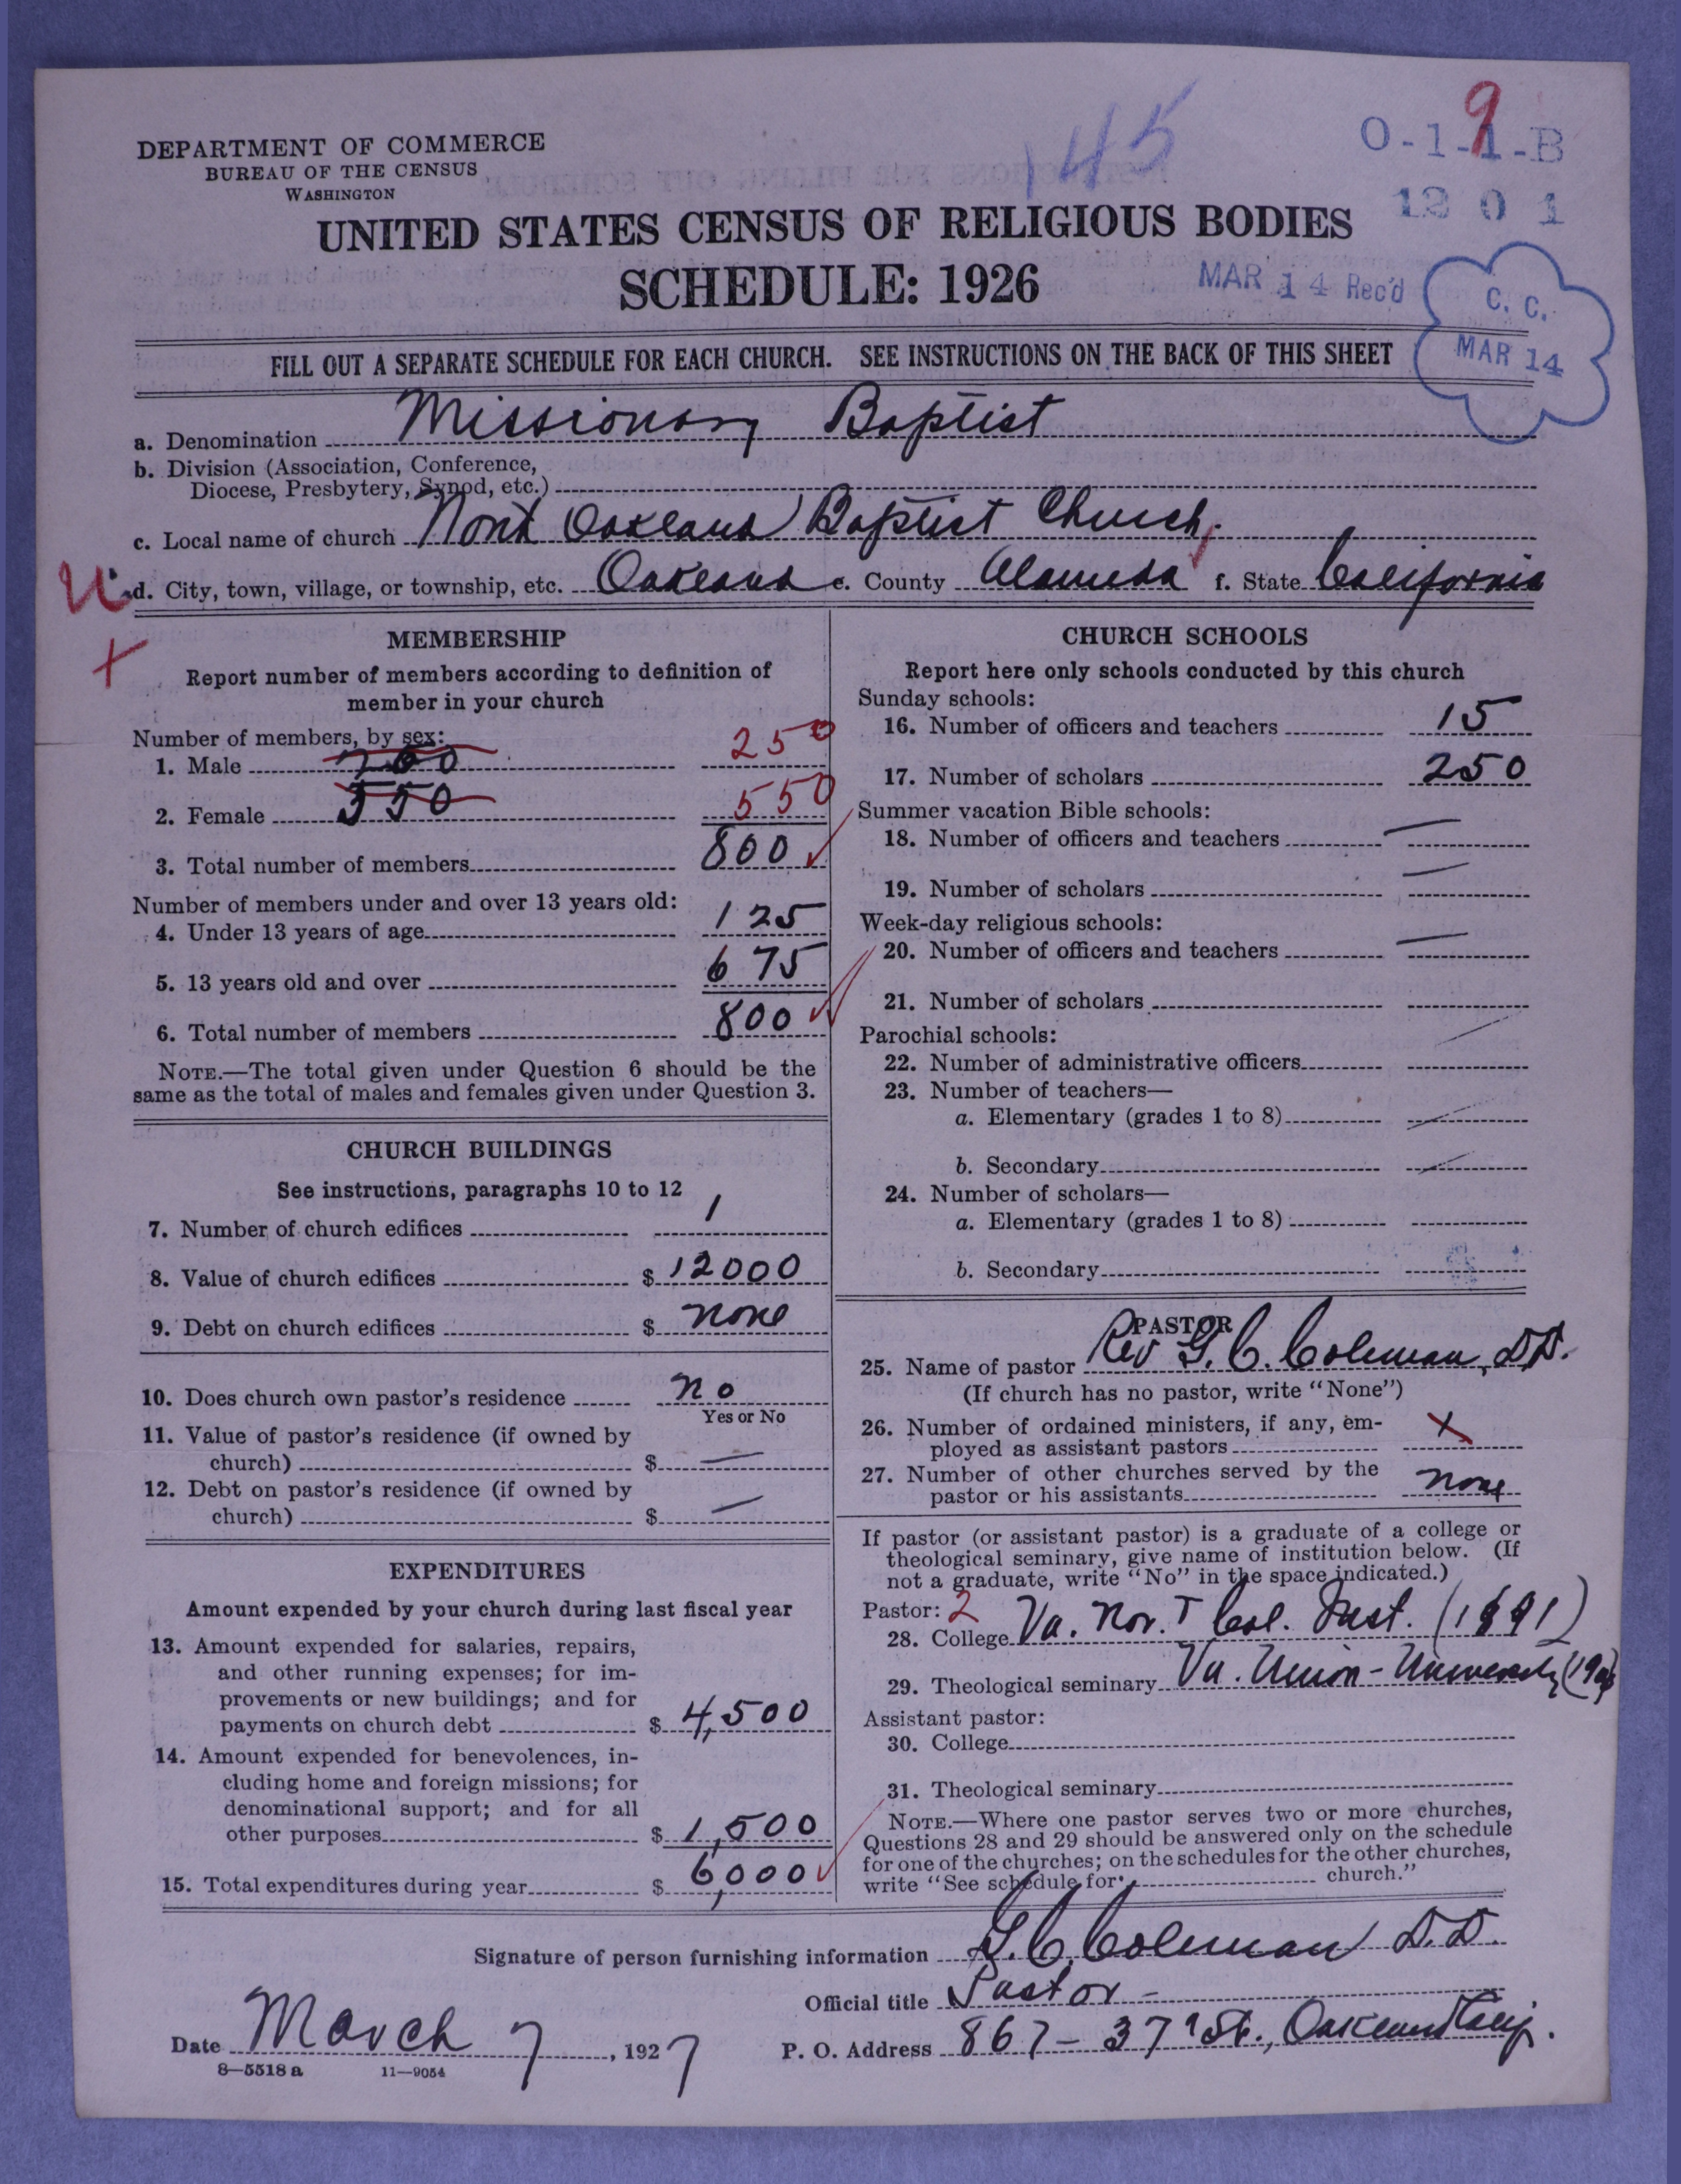 145
9
O-1-1-B
1201
DEPARTMENT OF COMMERCE
BUREAU OF THE CENSUS
WASHINGTON
UNITED STATES CENSUS OF RELIGIOUS BODIES
SCHEDULE: 1926
MAR 14 Rec'd
C. C.
MAR 14
FILL OUT A SEPARATE SCHEDULE FOR EACH CHURCH. SEE INSTRUCTIONS ON THE BACK OF THIS SHEET
a. Denomination Missionary Baptist
b. Division (Association, Conference,
Diocese, Presbytery, Synod, etc.)
c. Local name of church North Oakland Baptist Church.
d. City, town, village, or township, etc. Oakland e. County Alameda f. State California
MEMBERSHIP
Report number of members according to definition of
member in your church
Number of members, by sex:
1. Male 250
2. Female 550 550
3. Total number of members 800
Number of members under and over 13 years old:
4. Under 13 years of age 125
5. 13 years old and over 675
6. Total number of members 800
NOTE.—The total given under Question 6 should be the
same as the total of males and females given under Question 3.
CHURCH BUILDINGS
See instructions, paragraphs 10 to 12
7. Number of church edifices 1
8. Value of church edifices $ 12000
9. Debt on church edifices $ none
10. Does church own pastor's residence no
Yes or No
11. Value of pastor's residence (if owned by
church) $ —
12. Debt on pastor's residence (if owned by
church) $ —
EXPENDITURES
Amount expended by your church during last fiscal year
13. Amount expended for salaries, repairs,
and other running expenses; for im-
provements or new buildings; and for
payments on church debt $ 4,500
14. Amount expended for benevolences, in-
cluding home and foreign missions; for
denominational support; and for all
other purposes $ 1,500
15. Total expenditures during year $ 6,000
CHURCH SCHOOLS
Report here only schools conducted by this church
Sunday schools:
16. Number of officers and teachers 15
17. Number of scholars 250
Summer vacation Bible schools:
18. Number of officers and teachers —
19. Number of scholars —
Week-day religious schools:
20. Number of officers and teachers —
21. Number of scholars
Parochial schools:
22. Number of administrative officers
23. Number of teachers—
a. Elementary (grades 1 to 8)
b. Secondary
24. Number of scholars—
a. Elementary (grades 1 to 8)
b. Secondary
PASTOR
25. Name of pastor Rev G. C. Coleman, D.D.
(If church has no pastor, write "None")
26. Number of ordained ministers, if any, em-
ployed as assistant pastors X
27. Number of other churches served by the
pastor or his assistants none
If pastor (or assistant pastor) is a graduate of a college or
theological seminary, give name of institution below. (If
not a graduate, write "No" in the space indicated.)
Pastor: 2
28. College Va. Nor. & Col. Inst. (1891)
29. Theological seminary Va. Union-University
Assistant pastor:
30. College
31. Theological seminary
NOTE.—Where one pastor serves two or more churches,
Questions 28 and 29 should be answered only on the schedule
for one of the churches; on the schedules for the other churches,
write "See schedule for church."
Signature of person furnishing information G. C. Coleman D.D.
Official title Pastor -
Date March 7, 1927 P. O. Address 867 - 37 St., Oakland Calif.
8—5518 a 11—9054